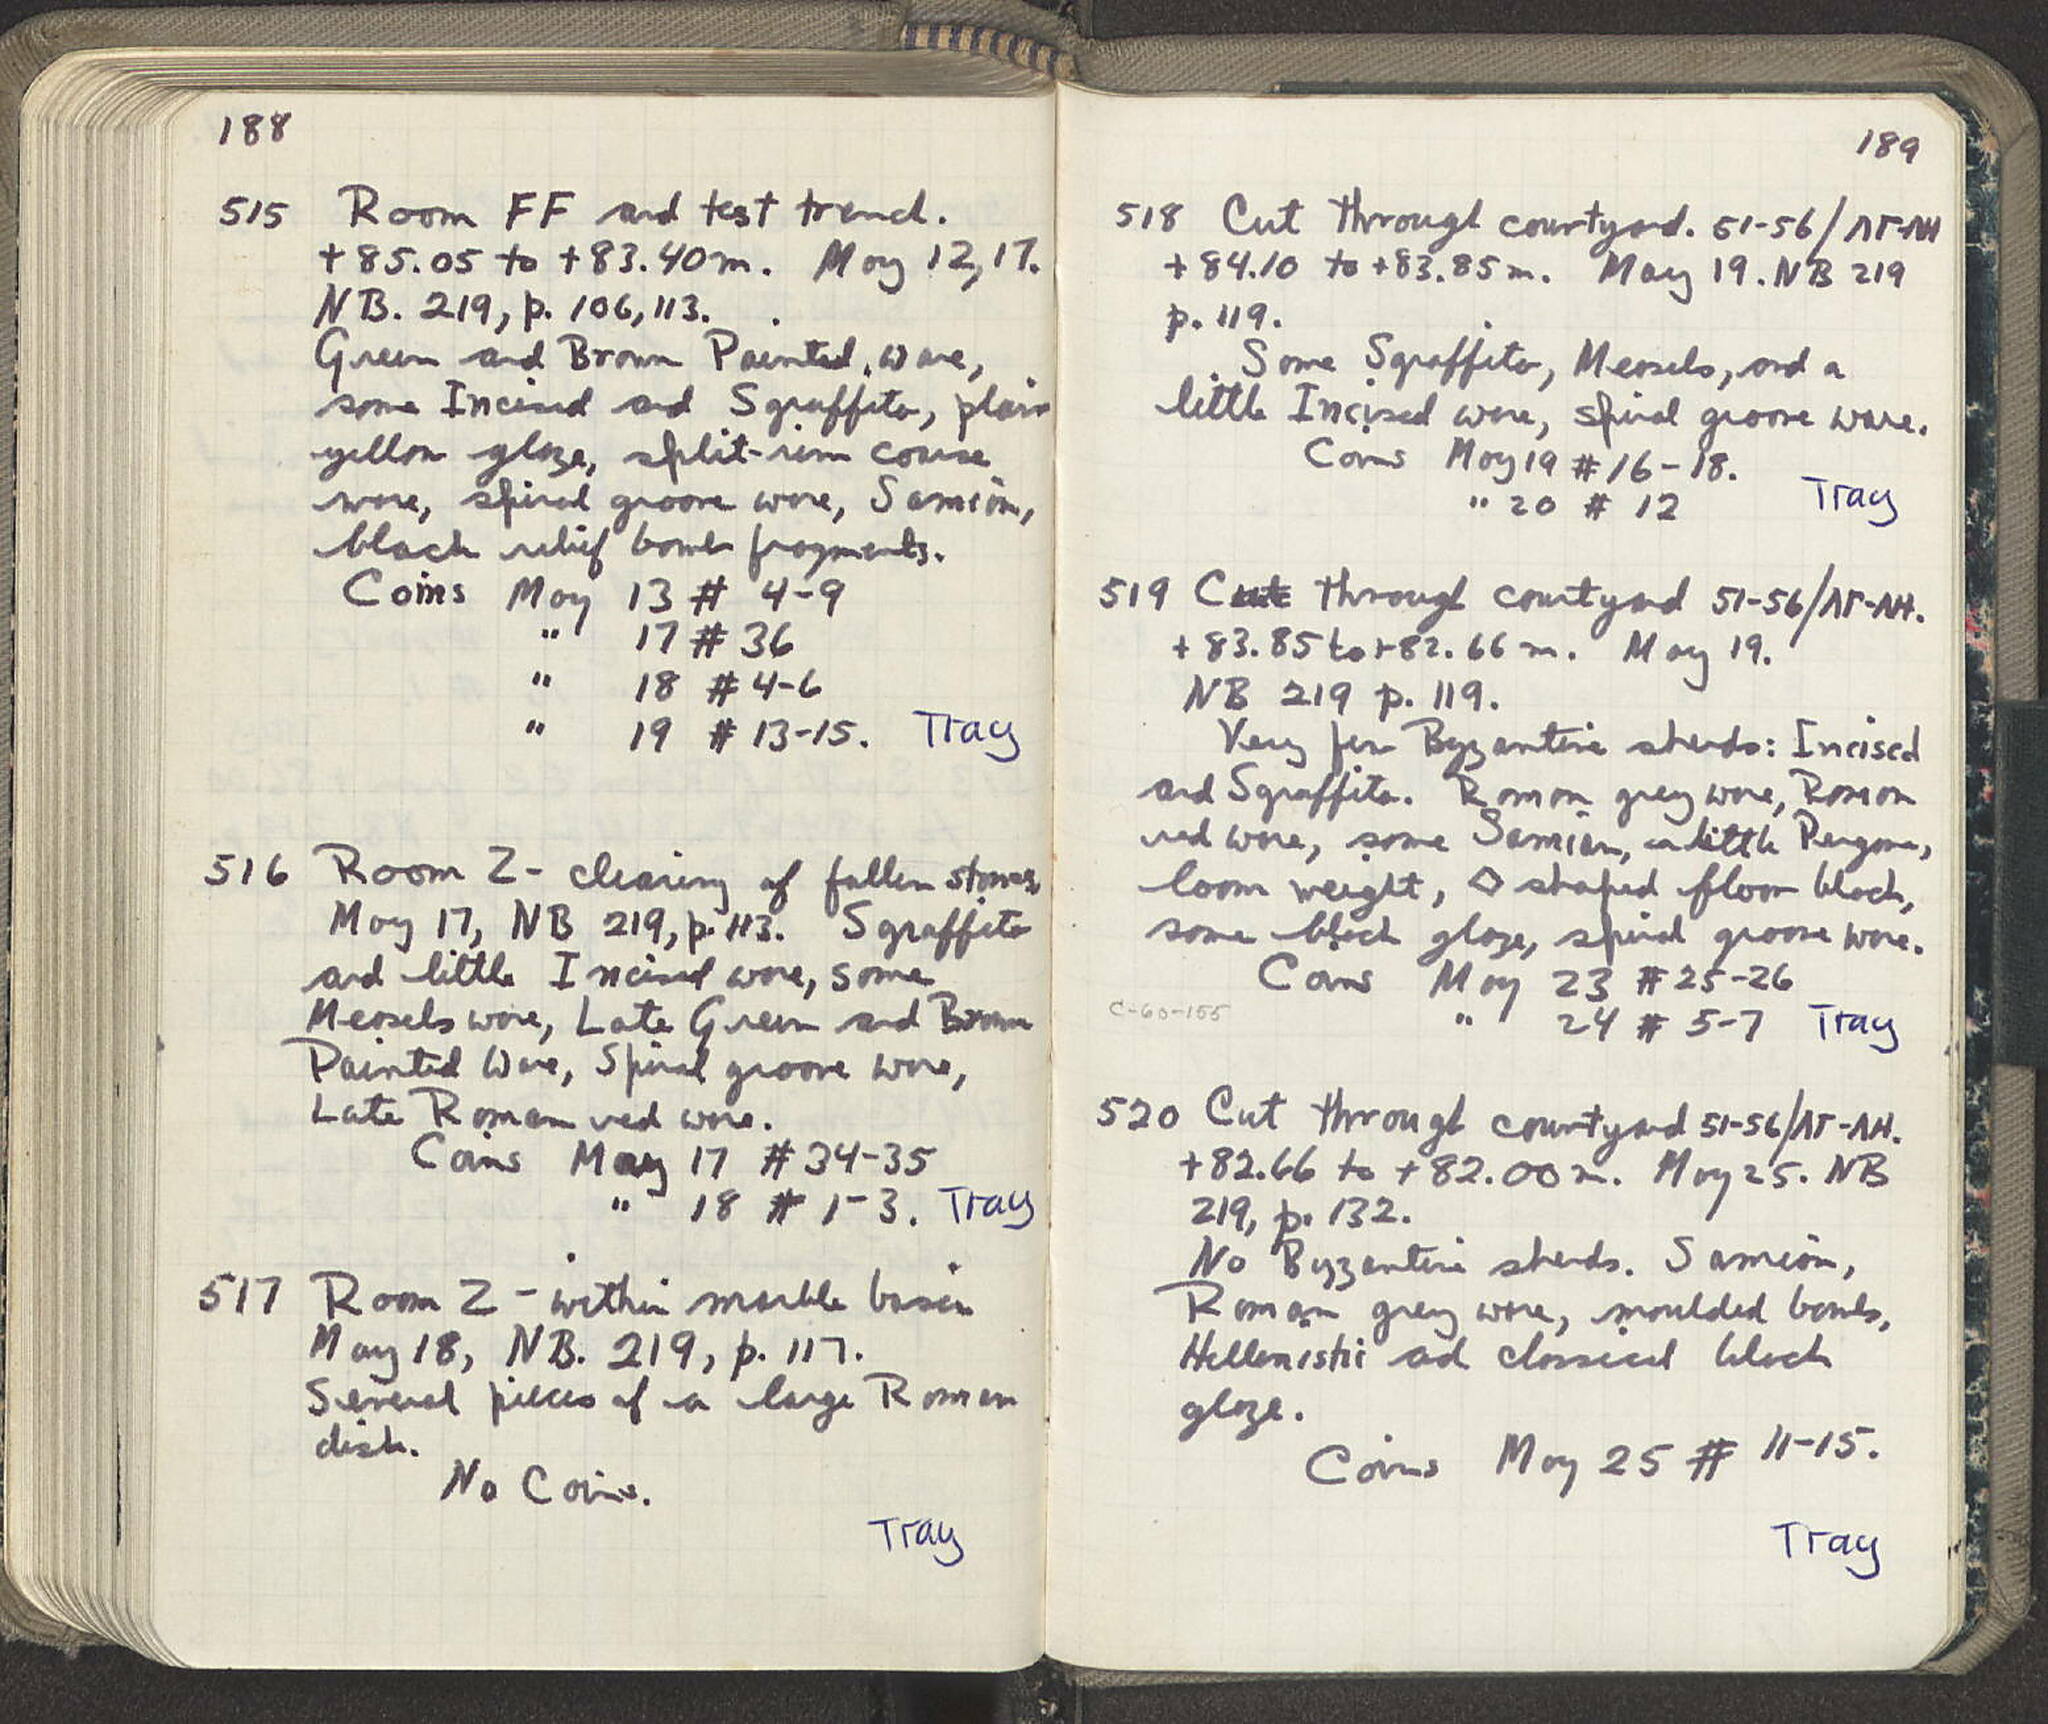 188
515 Room FF and test trench.
+85.05 to +83.40m. May 12, 17.
NB. 219, p. 106, 113.
Green and Brown Painted ware,
some Incised and Sgraffito, plain
yellow glaze, split-rim coarse
ware, spiral groove ware, Samian,
black relief bowl fragments.
Coins May 13 # 4-9
" 17 # 36
" 18 # 4-6
" 19 # 13-15. Tray
516 Room Z - clearing of fallen stones
May 17, NB 219, p. 113. Sgraffito
and little Incised ware, some
Measels ware, Late Green and Brown
Painted Ware, Spiral groove ware,
Late Roman red ware.
Coins May 17 # 34-35
" 18 # 1-3. Tray
517 Room Z - within marble basin
May 18, NB. 219, p. 117.
Several pieces of a large Roman
dish.
No Coins.
Tray
189
518 Cut through courtyard. 51-56/ΛΓ-ΛΗ
+84.10 to +83.85m. May 19. NB 219
p. 119.
Some Sgraffito, Measels, and a
little Incised ware, spiral groove ware.
Coins May 19 # 16-18.
" 20 # 12 Tray
519 Cut through courtyard 51-56/ΛΓ-ΛΗ.
+83.85 to +82.66 m. May 19.
NB 219 p. 119.
Very few Byzantine sherds: Incised
and Sgraffito. Roman grey ware, Roman
red ware, some Samian, a little Pergame,
loom weight, ◇ shaped floor block,
some black glaze, spiral groove ware.
Coins May 23 # 25-26
C-60-155
" 24 # 5-7 Tray
520 Cut through courtyard 51-56/ΛΓ-ΛΗ.
+82.66 to +82.00m. May 25. NB
219, p. 132.
No Byzantine sherds. Samian,
Roman grey ware, moulded bowls,
Hellenistic and classical black
glaze.
Coins May 25 # 11-15.
Tray